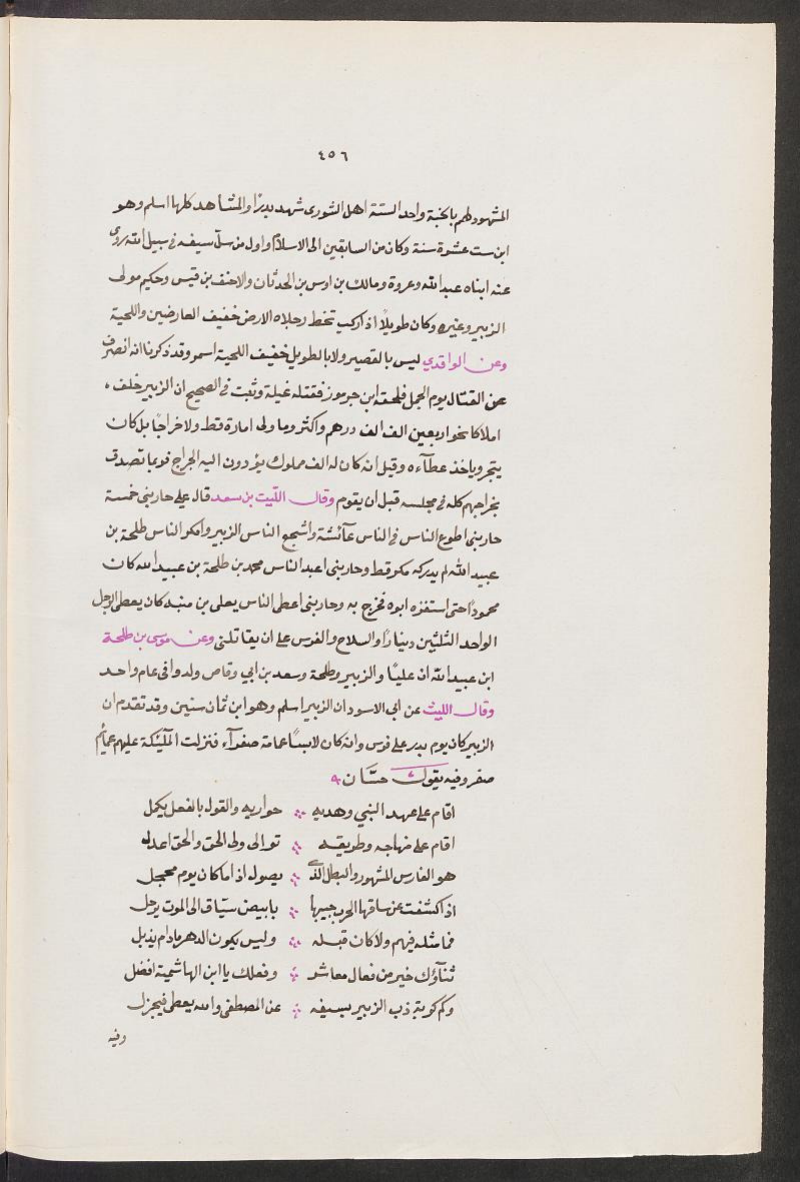 ٤٥٦
المشهود لهم بالجنة واحد الستة اهل الشورى شهد بدرًا والمشاهد كلها اسلم وهو
ابن ست عشرة سنة وكان من السابقين الى الاسلام واول من سلّ سيفه في سبيل الله روى
عنه ابناه عبدالله وعروة ومالك بن اوس بن الحدثان والاحنف بن قيس وحكيم مولى
الزبير وغيره وكان طويلًا اذا ركب تخط رجلاه الارض خفيف العارضين واللحية
وعن الواقدي ليس بالقصير ولا بالطويل خفيف اللحية اسمر وقد ذكرنا انه انصرف
عن القتال يوم الجمل فلحقه ابن جرموز فقتله غيلة وثبت في الصحيح ان الزبير خلف
املاكا بنحو اربعين الف الف درهم واكثر وما ولى امارة قط ولا خراجًا بل كان
يتجر وياخذ عطآءه وقيل انه كان له الف مملوك يؤدون اليه الخراج فربما تصدق
بخراجهم كله في مجلسه قبل ان يقوم وقال الليث بن سعد قال علي حاربني خمسة
حاربني اطوع الناس في الناس عآئشة واشجع الناس الزبير وامكر الناس طلحة بن
عبيد الله لم يدركه مكر قط وحاربني اعبد الناس محمد بن طلحة بن عبيد الله كان
محمودًا حتى استفزه ابوه فخرج به وحاربني اعطى الناس يعلى بن منبه كان يعطي الرجل
الواحد الثلثين دينارًا والسلاح والفرس على ان يقاتلني وعن موسى بن طلحة
ابن عبيد الله ان عليًا والزبير وطلحة وسعد بن ابي وقاص ولدوا في عام واحد
وقال الليث عن ابي الاسود ان الزبير اسلم وهو ابن ثمان سنين وقد تقدم ان
الزبير كان يوم بدر على فرس وانه كان لابسًا عمامة صفرآء فنزلت الملٓئكة عليهم عمآئم
صفر وفيه يقول حسّان
اقام على عهد النبي وهديه ∴ حواريه والقول بالفعل يكمل
اقام على منهاجه وطريقه ∴ توالى ولى الحق والحق اعدل
هو الفارس المشهور والبطل الذي ∴ يصول اذا ما كان يوم محجل
اذا كشفت عن ساقها الحرب ∴ بابيض سبّاق الى الموت يرحل
فما مثله فيهم ولا كان قبله ∴ وليس يكون الدهر مادام يذبل
ثنآؤك خير من فعال معاشر ∴ وفعلك يا ابن الهاشمية افضل
وكم كربة ذب الزبير بسيفه ∴ عن المصطفى والله يعطي فيجزل
وفيه